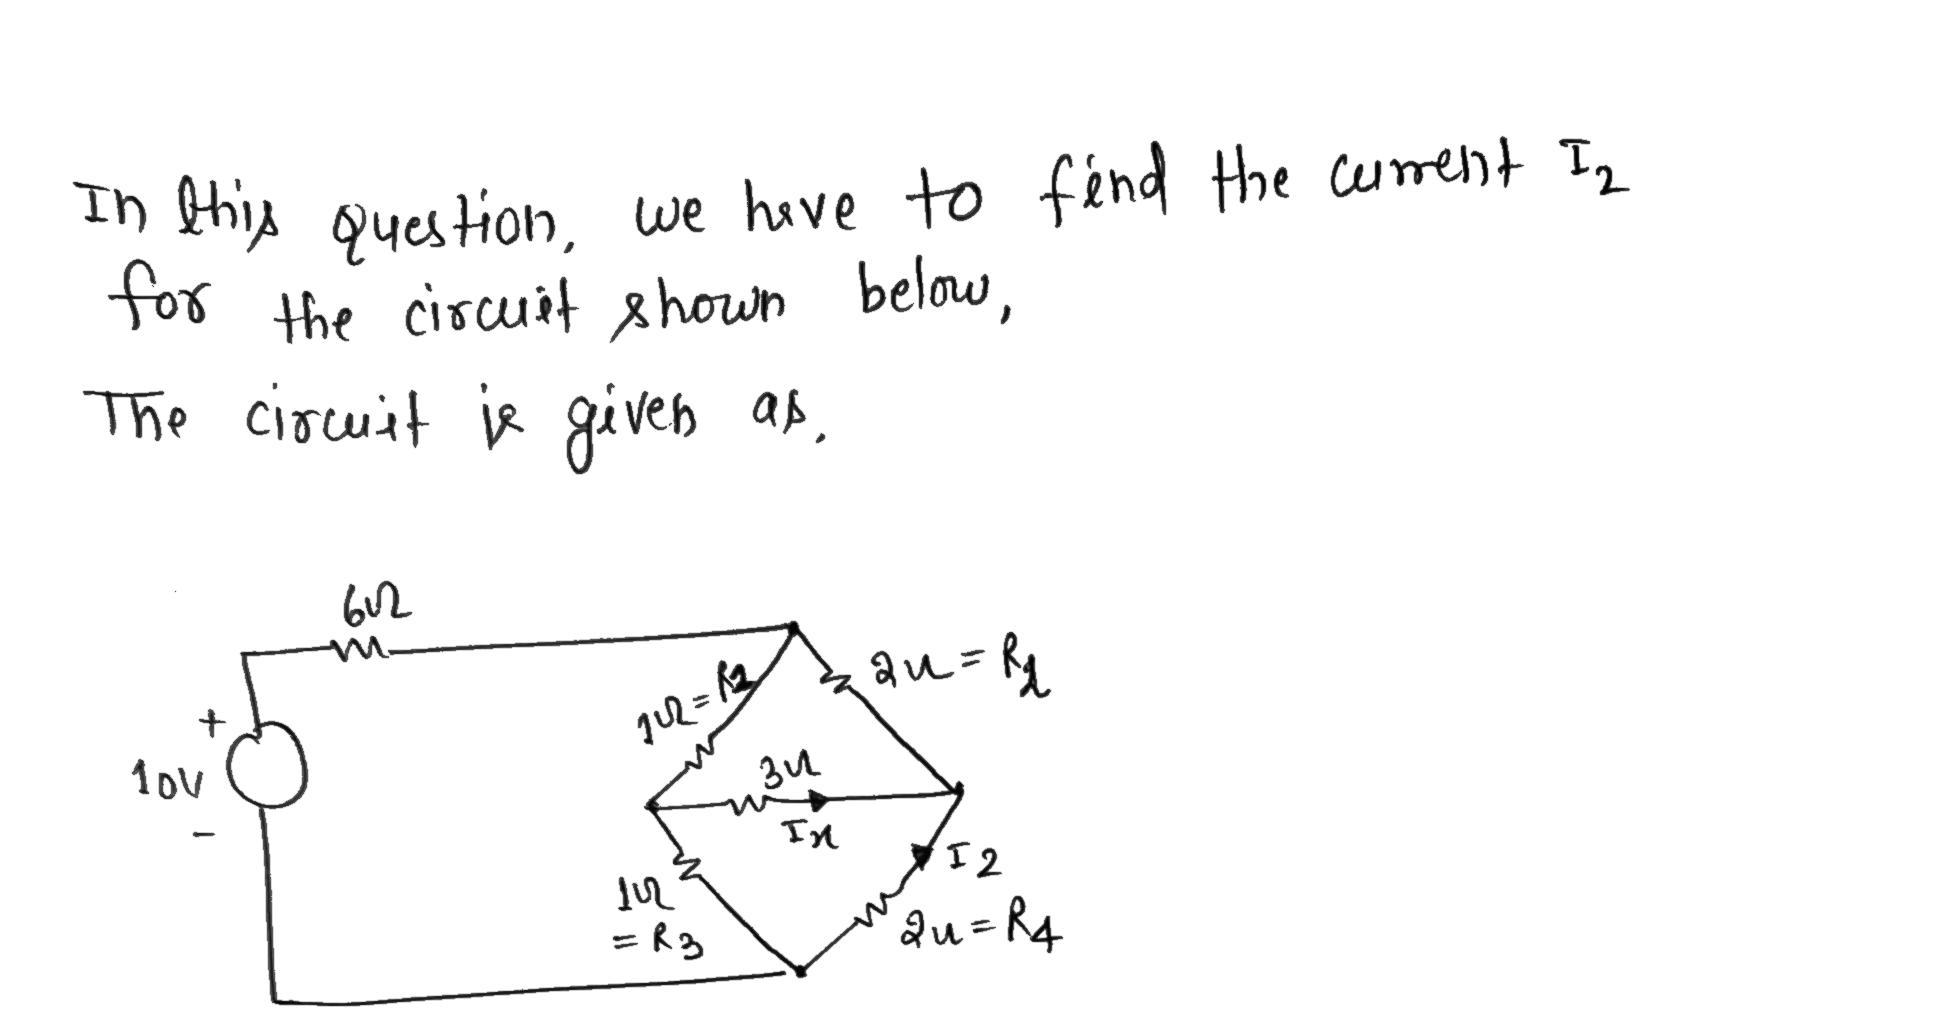 In this question, we have to find the current I2
for the circuit shown below,
The circuit is given as,
6Ω
1Ω = R2
2Ω = R1
+
10V
-
3Ω
Ix
I2
1Ω
= R3
2Ω = R4